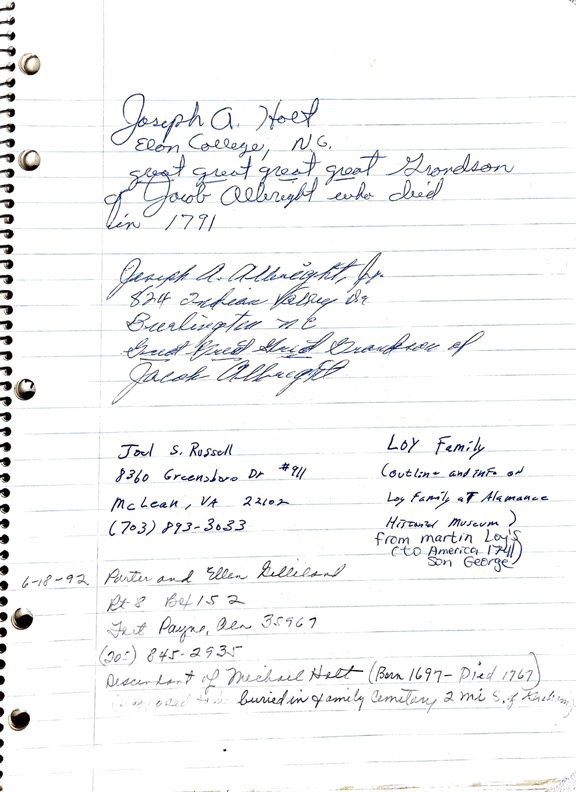 Joseph A. Holt
Elon College, N.C.
great great great great Grandson
of Jacob Albright who died
in 1791
Joseph A. Albright, Jr.
824 Indian Valley Dr
Burlington NC
Great Great Great Grandson of
Jacob Albright
Joel S. Russell
8360 Greensboro Dr #911
McLean, VA 22102
(703) 893-3033
LOY Family
(outline and info on
Loy Family at Alamance
Historical Museum)
from martin Loy's
(to America 1741)
Son George
6-18-92 Porter and Ellen Gilliland
Rt 8 Bx 152
Fort Payne, Ala 35967
(205) 845-2935
Descendant of Michael Holt (Born 1697- Died 1767)
buried in family Cemetary 2 mi S. of